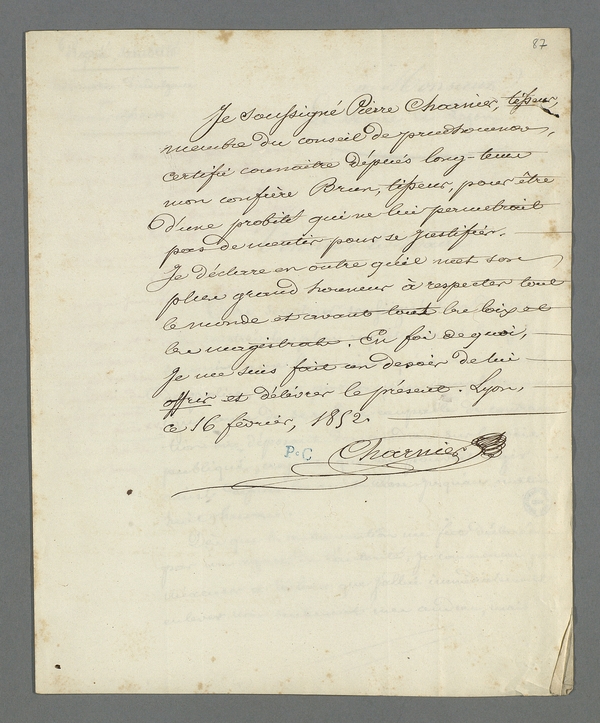 87
Je soussigné Pierre Charnier, tisseur,
membre du conseil de prudhommes,
certifie connaitre dépuis long-tems
mon confrère Brun, tisseur, pour être
d'une probité qui ne lui permettrait
pas de mentir pour se justifier.
Je déclare en outre qu'il met son
plus grand honneur à respecter tout
le monde et avant tout les loix et
les magistrats. En foi de quoi,
je me suis fait un devoir de lui
offrir et délivrer le présent. Lyon,
ce 16 février, 1852.
P.C Charnier